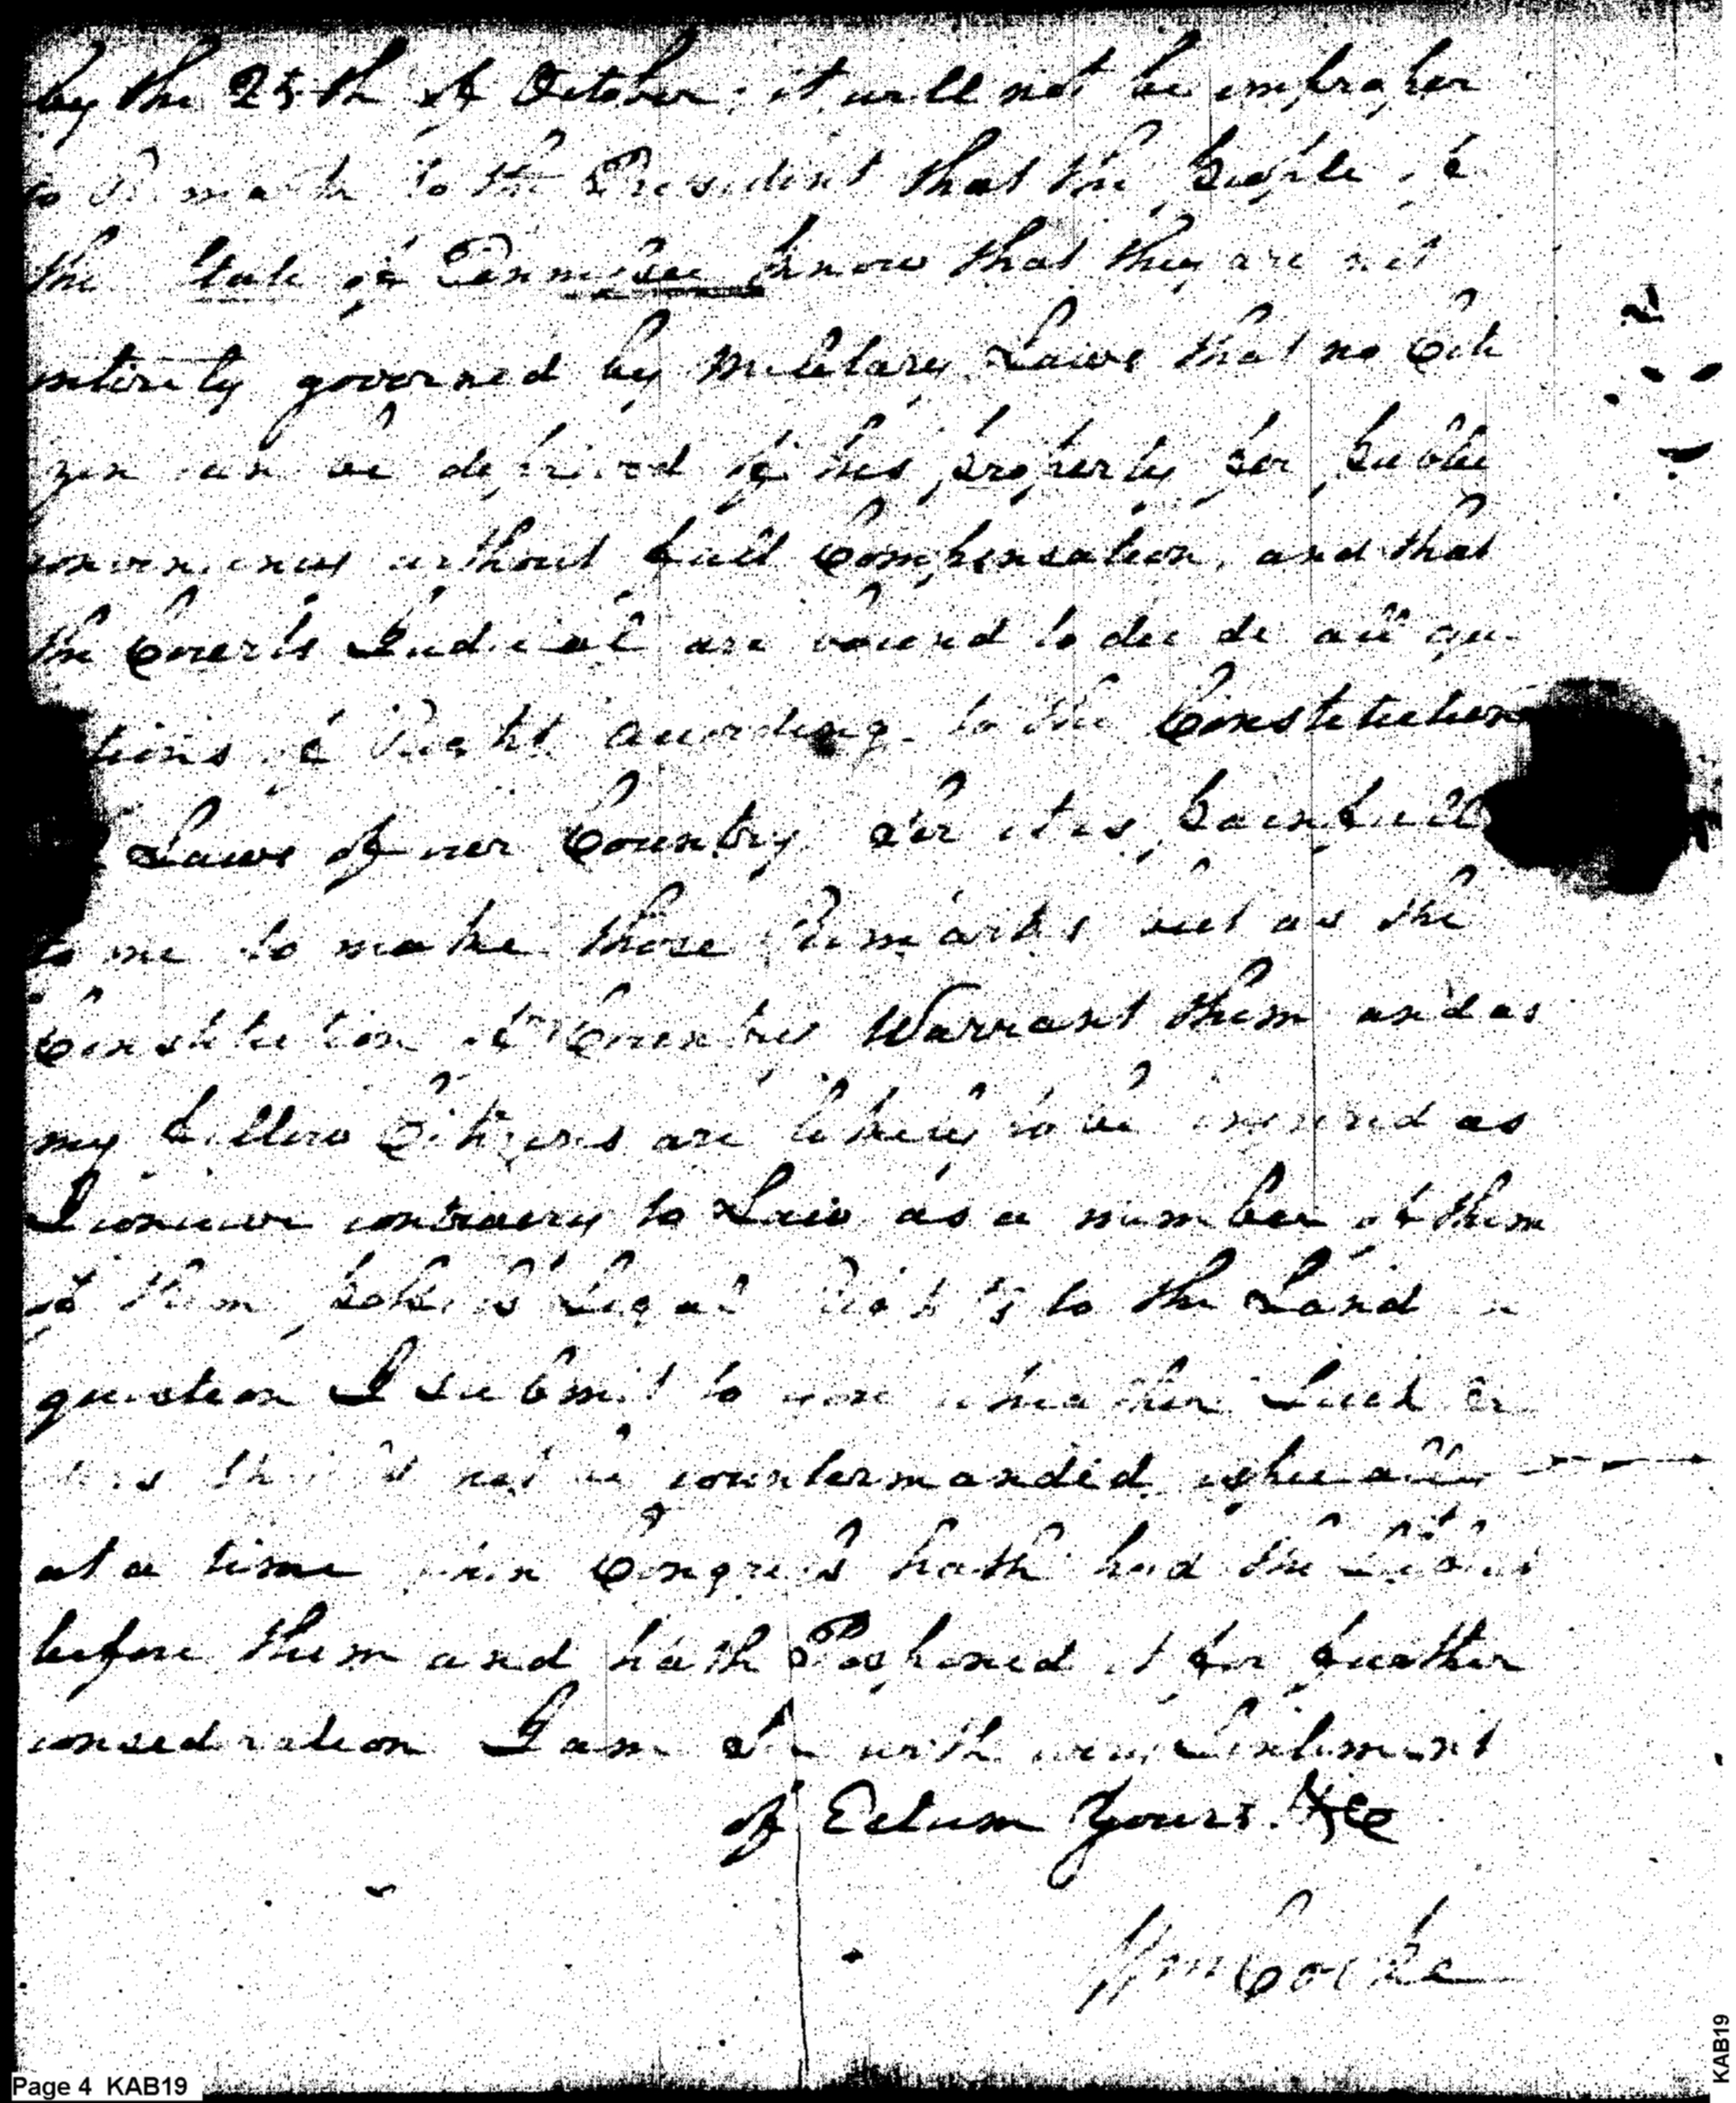 by the 25th of October. it will not be improper
to Remark to the President that the people of
the State of Tennessee know that they are not
intirely governed by Military Laws that no Citi
zen can be deprived of his property for public
conveniency without full Compensation, and that
the Courts Judicial are bound to decide all qu
tions of Right according to the Constitution
Laws of our Country Sir it is painfull
to me to make those Remarks but as the
Constitution of Country Warrant them and as
my fellow Citizens are likely to be injured as
I concieve contrary to Law as a number of them
of them Legal Rights to the Land in
question I submit to you wheather Such or
not be countermanded
at a time when Congress hath had the
before them and hath Posponed it for further
consedration I am Sir with Sentiment
of Estum Yours &c
Wm Cocke
Page 4 KAB19
KAB19